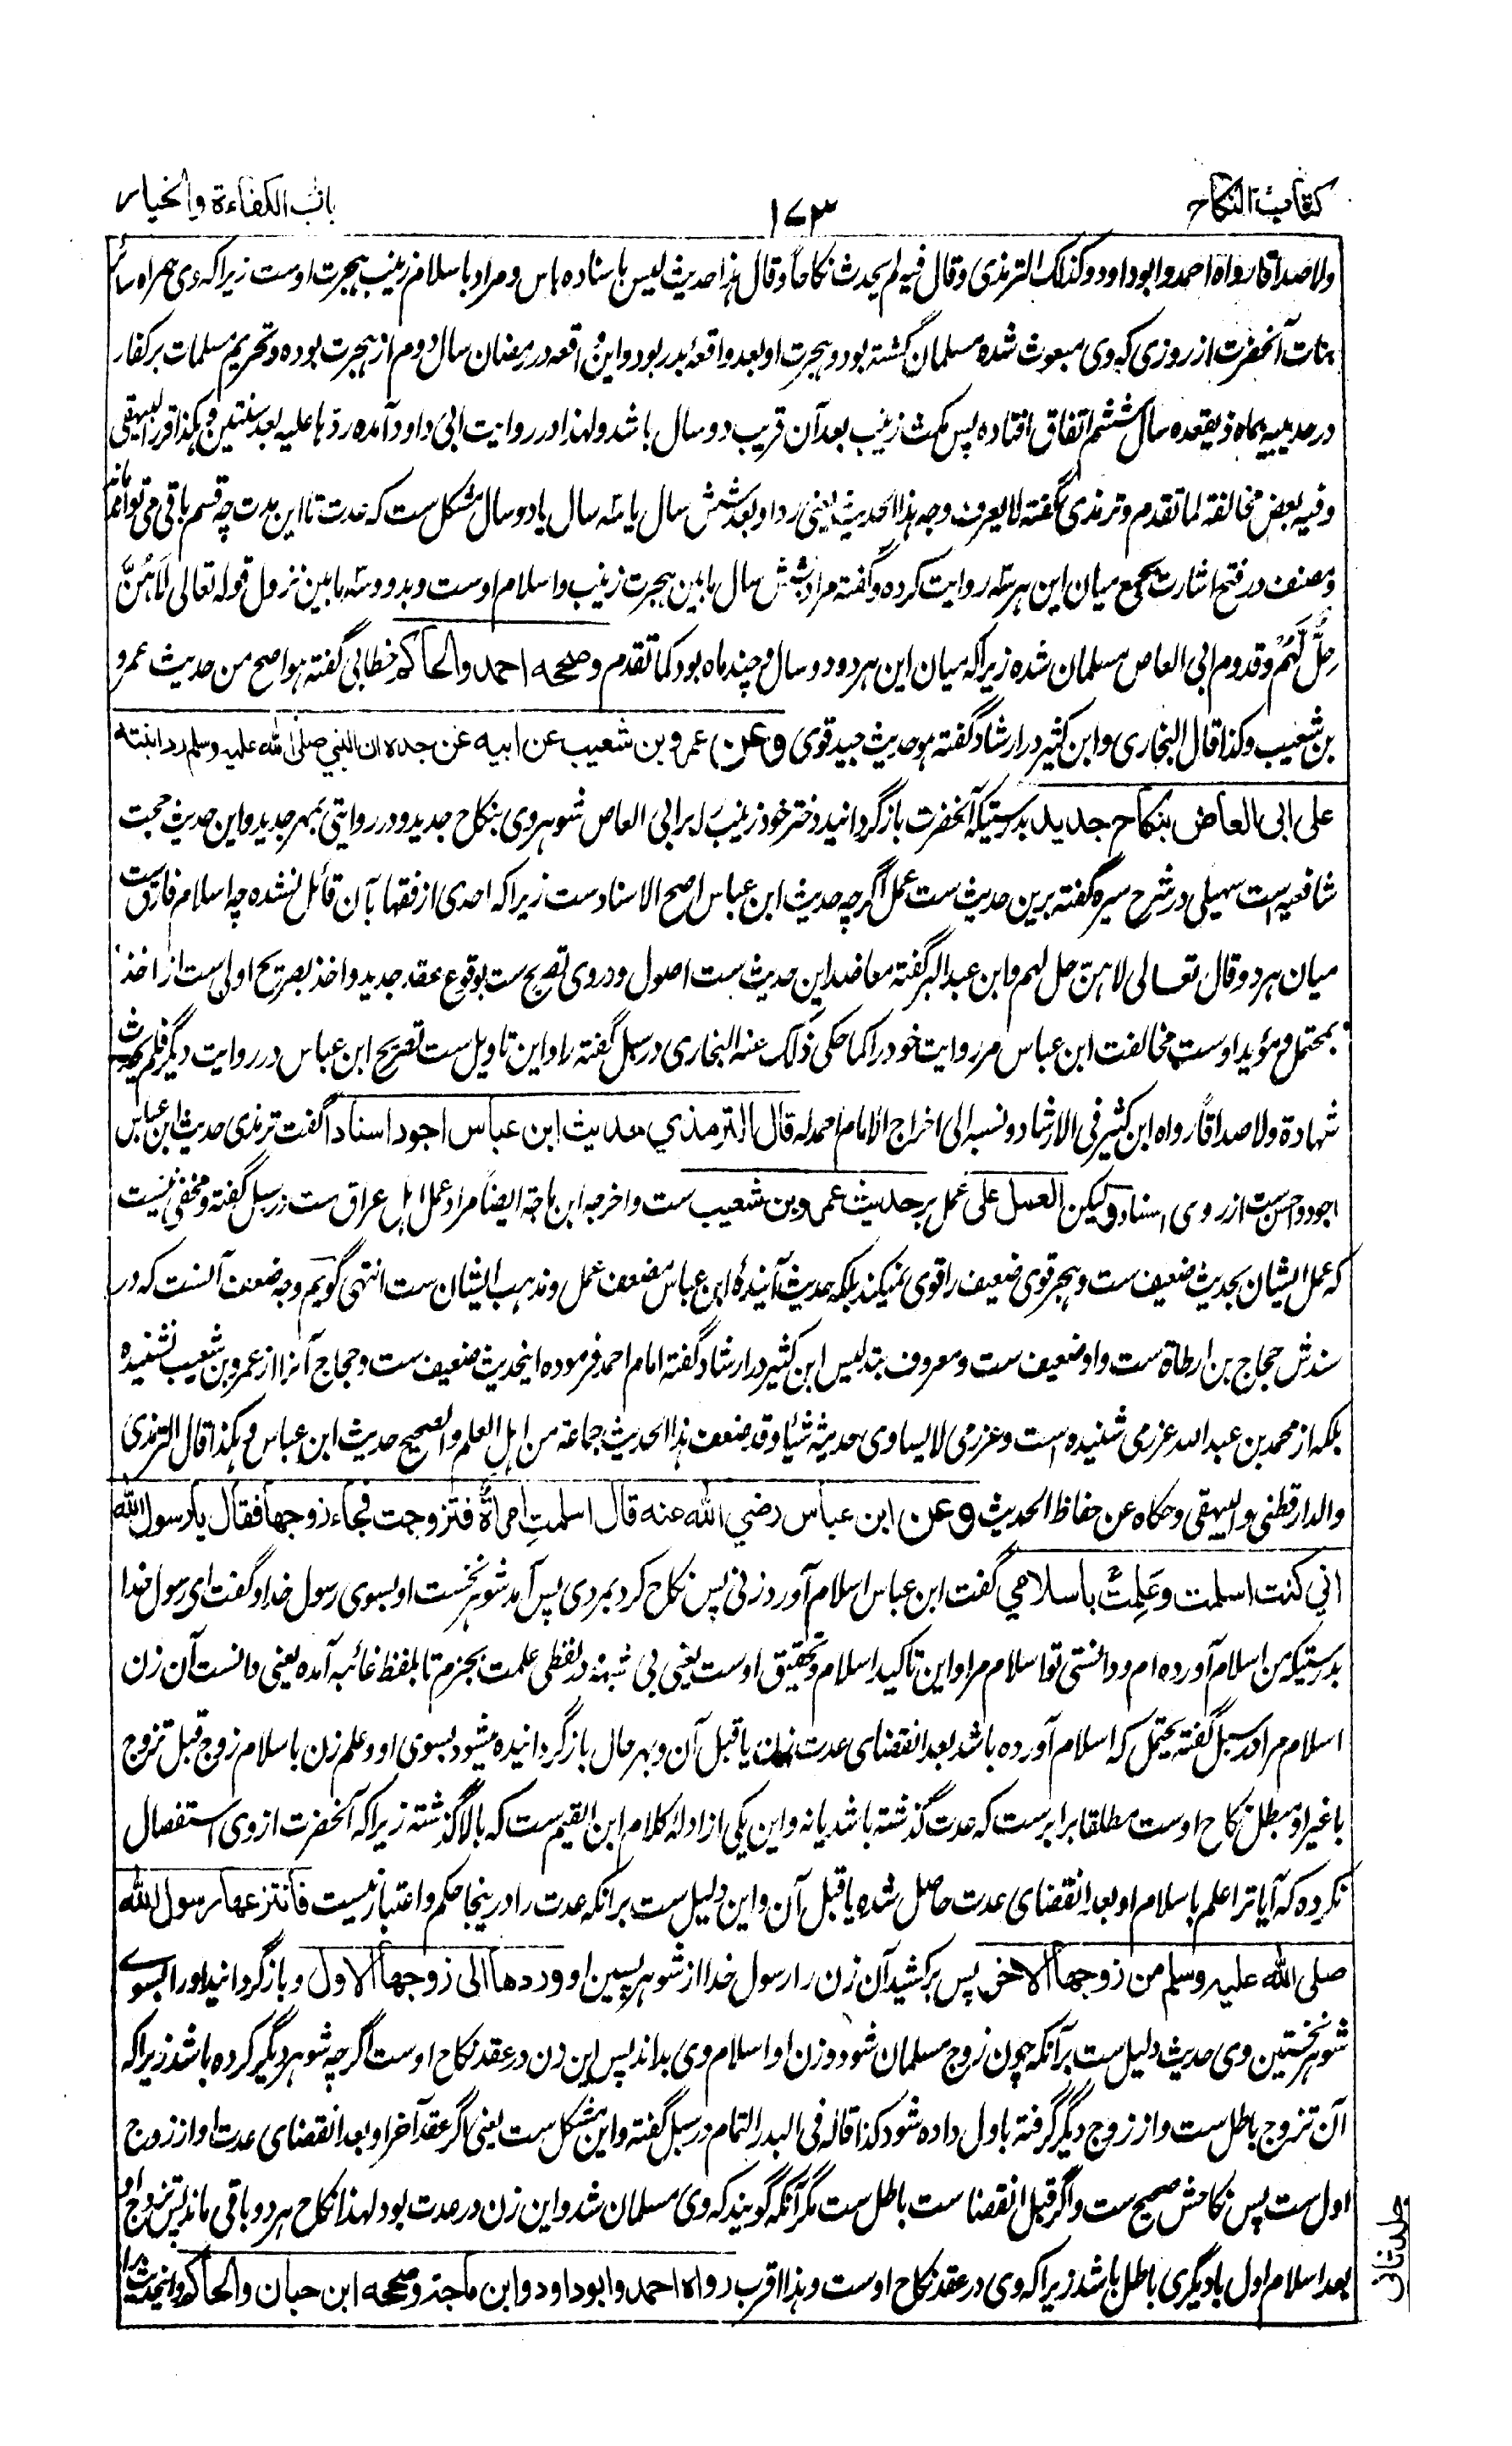 كتاب النكاح
١٧٣
باب الكفاءة والخيار
ولا صداقا رواه احمد وابو داود وكذلك الترمذی وقال فيه لم يحدث نكاحا وقال هذا حديث ليس باسناده باس ومراد باسلام زينب هجرت اوست زيراكه وی همراه سائر
بنات آنحضرت از روزی كه وی مبعوث شده مسلمان گشته بود و هجرت او بعد واقعۀ بدر بود و اين واقعه در رمضان سال دوم از هجرت بوده و تحريم مسلمات بر كفار
در حديبيه بماه ذيقعده سال ششم اتفاق افتاده پس مكث زينب بعد آن قريب دو سال باشد ولهذا در روايت ابی داود آمده ردّها عليه بعد سنتين وهكذا قرر البيهقی
وفيه بعض مخالفة لما تقدم و ترمذی گفته لا يعرف وجه هذا الحديث يعنی رد او بعد شش سال يا سه سال يا دو سال مشكل ست كه عدت تا اين مدت چه قسم باقی می تواند ماند
و مصنف در فتح اشارت بجمع ميان اين هر سه روايت كرده و گفته مراد بشش سال ما بين هجرت زينب و اسلام اوست و بدو و سه ما بين نزول قوله تعالی لَا هُنَّ
حِلٌّ لَهُمْ و قدوم ابی العاص مسلمان شده زيراكه ميان اين هر دو دو سال و چند ماه بود كما تقدم وصححه احمد والحاكم خطابی گفته هو اصح من حديث عمرو
بن شعيب وكذا قال البخاری و ابن كثير در ارشاد گفته هو حديث جيد قوی وعن عمرو بن شعيب عن ابيه عن جده ان النبي صلی الله عليه وسلم رد ابنته
علی ابی العاص بنكاح جديد بدرستيكه آنحضرت بازگردانيد دختر خود زينب را بر ابی العاص شوهر وی بنكاح جديد و در روايتی بمهر جديد و اين حديث حجت
شافعيه است سهيلی در شرح سيره گفته برين حديث ست عمل اگرچه حديث ابن عباس اصح الاسناد ست زيراكه احدی از فقها بآن قائل نشده چه اسلام فارق ست
ميان هر دو قال تعالی لا هنّ حل لهم و ابن عبد البر گفته معاضد اين حديث ست اصول و در وی تصريح ست بوقوع عقد جديد و اخذ بصريح اولی ست از اخذ
بمحتمل و مؤيد اوست مخالفت ابن عباس مر روايت خود را كما حكی ذلك عنه البخاری در سبل گفته راد اين تاويل ست تصريح ابن عباس در روايت ديگر فلم يحدث
شهادة ولا صداقاً رواه ابن كثير فی الارشاد ونسبه الی اخراج الامام احمد له قال الترمذي حديث ابن عباس اجود اسنادا گفت ترمذی حديث ابن عباس
اجود و احسن ست از روی اسناد وليكن العمل علی عمل بر حديث عمرو بن شعيب ست و اخرجه ابن ماجة ايضاً مراد عمل اهل عراق ست در سبل گفته و مخفی نيست
كه عمل ايشان بحديث ضعيف ست و هجر قوی ضعيف را قوی نميكند بلكه حديث آينده ابن عباس مضعف عمل و مذهب ايشان ست انتهی گويم وجه ضعف آنست كه در
سندش حجاج بن ارطاة ست و او ضعيف ست و معروف بتدليس ابن كثير در ارشاد گفته امام احمد فرموده اينحديث ضعيف ست و حجاج آنرا از عمرو بن شعيب نشنيده
بلكه از محمد بن عبد الله عزرمی شنيده است و عزرمی لا يساوی حديثه شيئا وقد ضعف هذا الحديث جماعة من اهل العلم والصحيح حديث ابن عباس وهكذا قال الترمذی
والدارقطنی والبيهقی وحكاه عن حفاظ الحديث وعن ابن عباس رضي الله عنه قال اسلمت امراة فتزوجت فجاء زوجها فقال يا رسول الله
اني كنت اسلمت وعَلِمتْ باسلامي گفت ابن عباس اسلام آورد زنی پس نكاح كرد بمردی پس آمد شوهر نخست او بسوی رسول خدا و گفت ای رسول خدا
بدرستيكه من اسلام آورده ام و دانستی تو اسلام مرا و اين تاكيد اسلام و تحقيق اوست يعنی بی شبهه در لفظی علمت بجزم تا بلفظ غائبه آمده يعنی دانست آن زن
اسلام مرا در سبل گفته يحتمل كه اسلام آورده باشد بعد انقضای عدت زن يا قبل آن و بهر حال بازگردانيده ميشود بسوی او و علم زن باسلام زوج قبل تزوج
باغير او مبطل نكاح اوست مطلقا برابرست كه عدت گذشته باشد يا نه و اين يكی از ادلۀ كلام ابن القيم ست كه بالا گذشته زيراكه آنحضرت از وی استفصال
نكرده كه آيا ترا علم باسلام او بعد انقضای عدت حاصل شده يا قبل آن و اين دليل ست برانكه عدت را درينجا حكم و اعتبار نيست فانتزعها رسول الله
صلی الله عليه وسلم من زوجها الاخر پس بركشيد آن زن را رسول خدا از شوهر پسين او وردها الی زوجها الاول و بازگردانيد او را بسوے
شوهر نخستين وی حديث دليل ست برآنكه چون زوج مسلمان شود و زن او اسلام وی بداند پس اين زن در عقد نكاح اوست اگرچه شوهر ديگر كرده باشد زيراكه
آن تزوج باطل ست و از زوج ديگر گرفته باول داده شود كذا قاله فی البدر التمام در سبل گفته و اين مشكل ست يعنی اگر عقد آخر او بعد انقضای عدت او از زوج
اول ست پس نكاحش صحيح ست و اگر قبل انقضا ست باطل ست مگر آنكه گويند كه وی مسلمان شد و اين زن در عدت بود لهذا نكاح هر دو باقی ماند پس تزوج او
بعد اسلام اول با ديگری باطل باشد زيراكه وی در عقد نكاح اوست وهذا اقرب رواه احمد وابو داود وابن ماجة وصححه ابن حبان والحاكم و اينحديث را
جلد ثانی